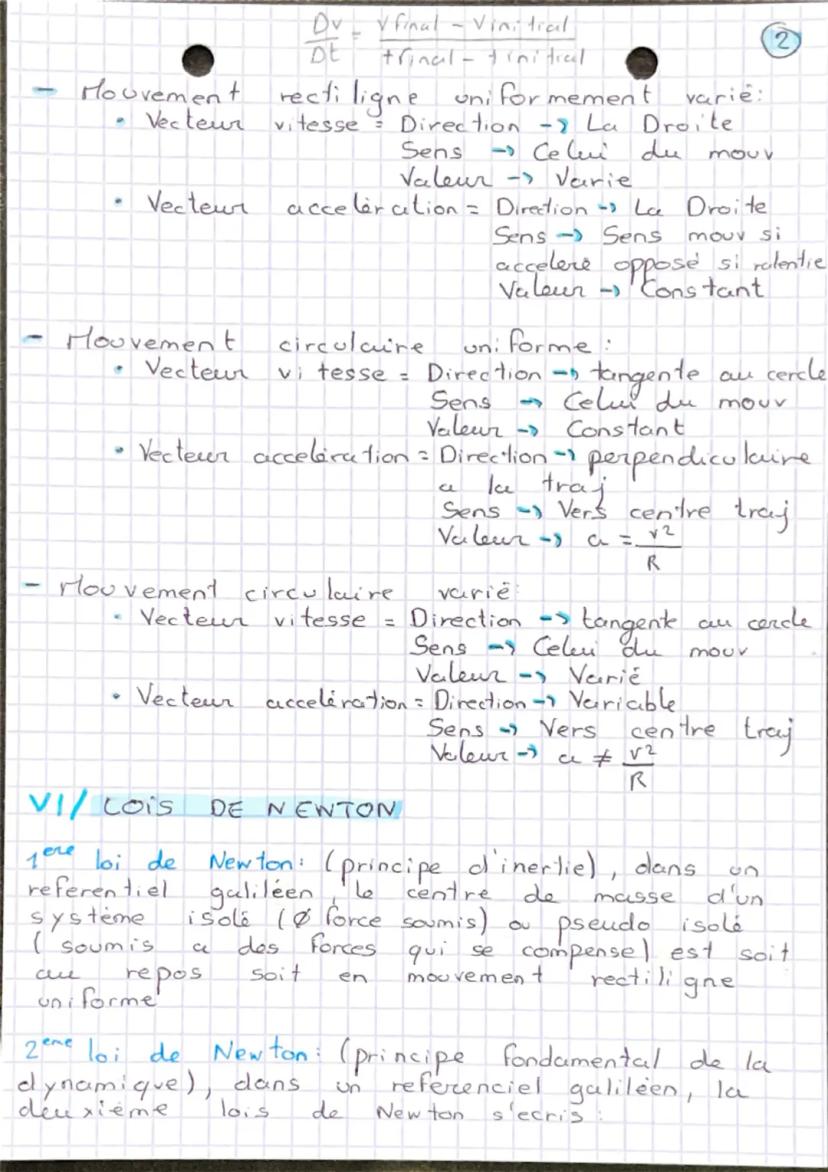 Dv/Dt = Vfinal - Vinitial / tfinal - tinitial
2
- Mouvement rectiligne uniformement varié:
• Vecteur vitesse = Direction -> La Droite
Sens -> Celui du mouv
Valeur -> Varie
• Vecteur acceleration = Direction -> La Droite
Sens -> Sens mouv si
acceleré opposé si ralentie
Valeur -> Constant
- Mouvement circulaire uniforme :
• Vecteur vitesse = Direction -> tangente au cercle
Sens -> Celui du mouv
Valeur -> Constant
• Vecteur accelération = Direction -> perpendiculaire
a la traj
Sens -> Vers centre traj
Valeur -> a = v²/R
- Mouvement circulaire varié:
• Vecteur vitesse = Direction -> tangente au cercle
Sens -> Celui du mouv
Valeur -> Varié
• Vecteur accelération = Direction -> Variable
Sens -> Vers centre traj
Valeur -> a ≠ v²/R
VI/ LOIS DE NEWTON
1ere loi de Newton: (principe d'inertie), dans un
referentiel galiléen, le centre de masse d'un
système isolé (Ø force soumis) ou pseudo isolé
(soumis a des forces qui se compense) est soit
au repos soit en mouvement rectiligne
uniforme
2eme loi de Newton: (principe fondamental de la
dynamique), dans un referenciel galiléen, la
deuxième lois de Newton s'ecris :